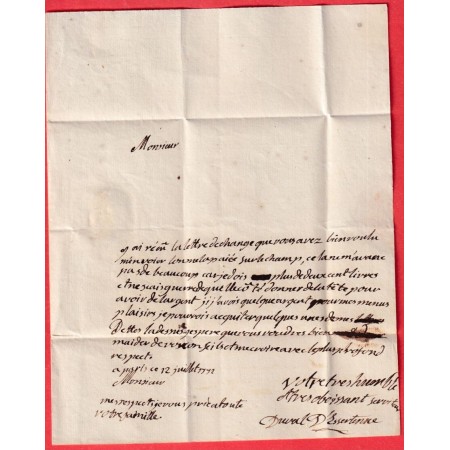 Monsieur
j'ai réçu la lettre de change que vous avez bien voulu
m'envoier on l'a paiée sur le champ, cela ne m'avance
pas de beaucoup car je dois plus de deux cent livres
et ne sais guerre de quelle coté donner de la tete pour
avoir de l'argent si j'avois quelque argent pour mes menus
plaisirs je pourrois acquiter quelques unes de mes
dettes la dessus j'espere que vous voudrez bien
m'aider de vos conseils et me croire avec le plus profond
respect
a paris ce 12 juillet 1772
Monsieur
mes respects je vous prie a toute
votre famille
Votre tres humble
et tres obeissant serviteur
Duval D'Essertenne